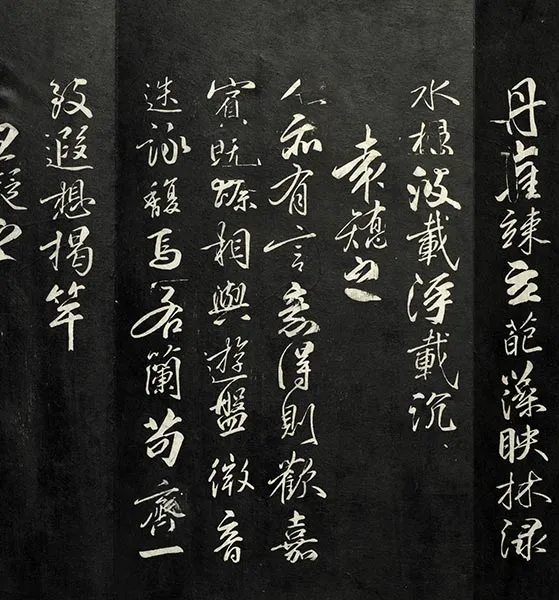 丹崖竦立葩藻映林渌
水揚波載浮載沉
袁嶠之
人亦有言意得則歡嘉
賓既臻相與遊盤微音
迭詠馥焉若蘭苟齊一
致遐想揭竿